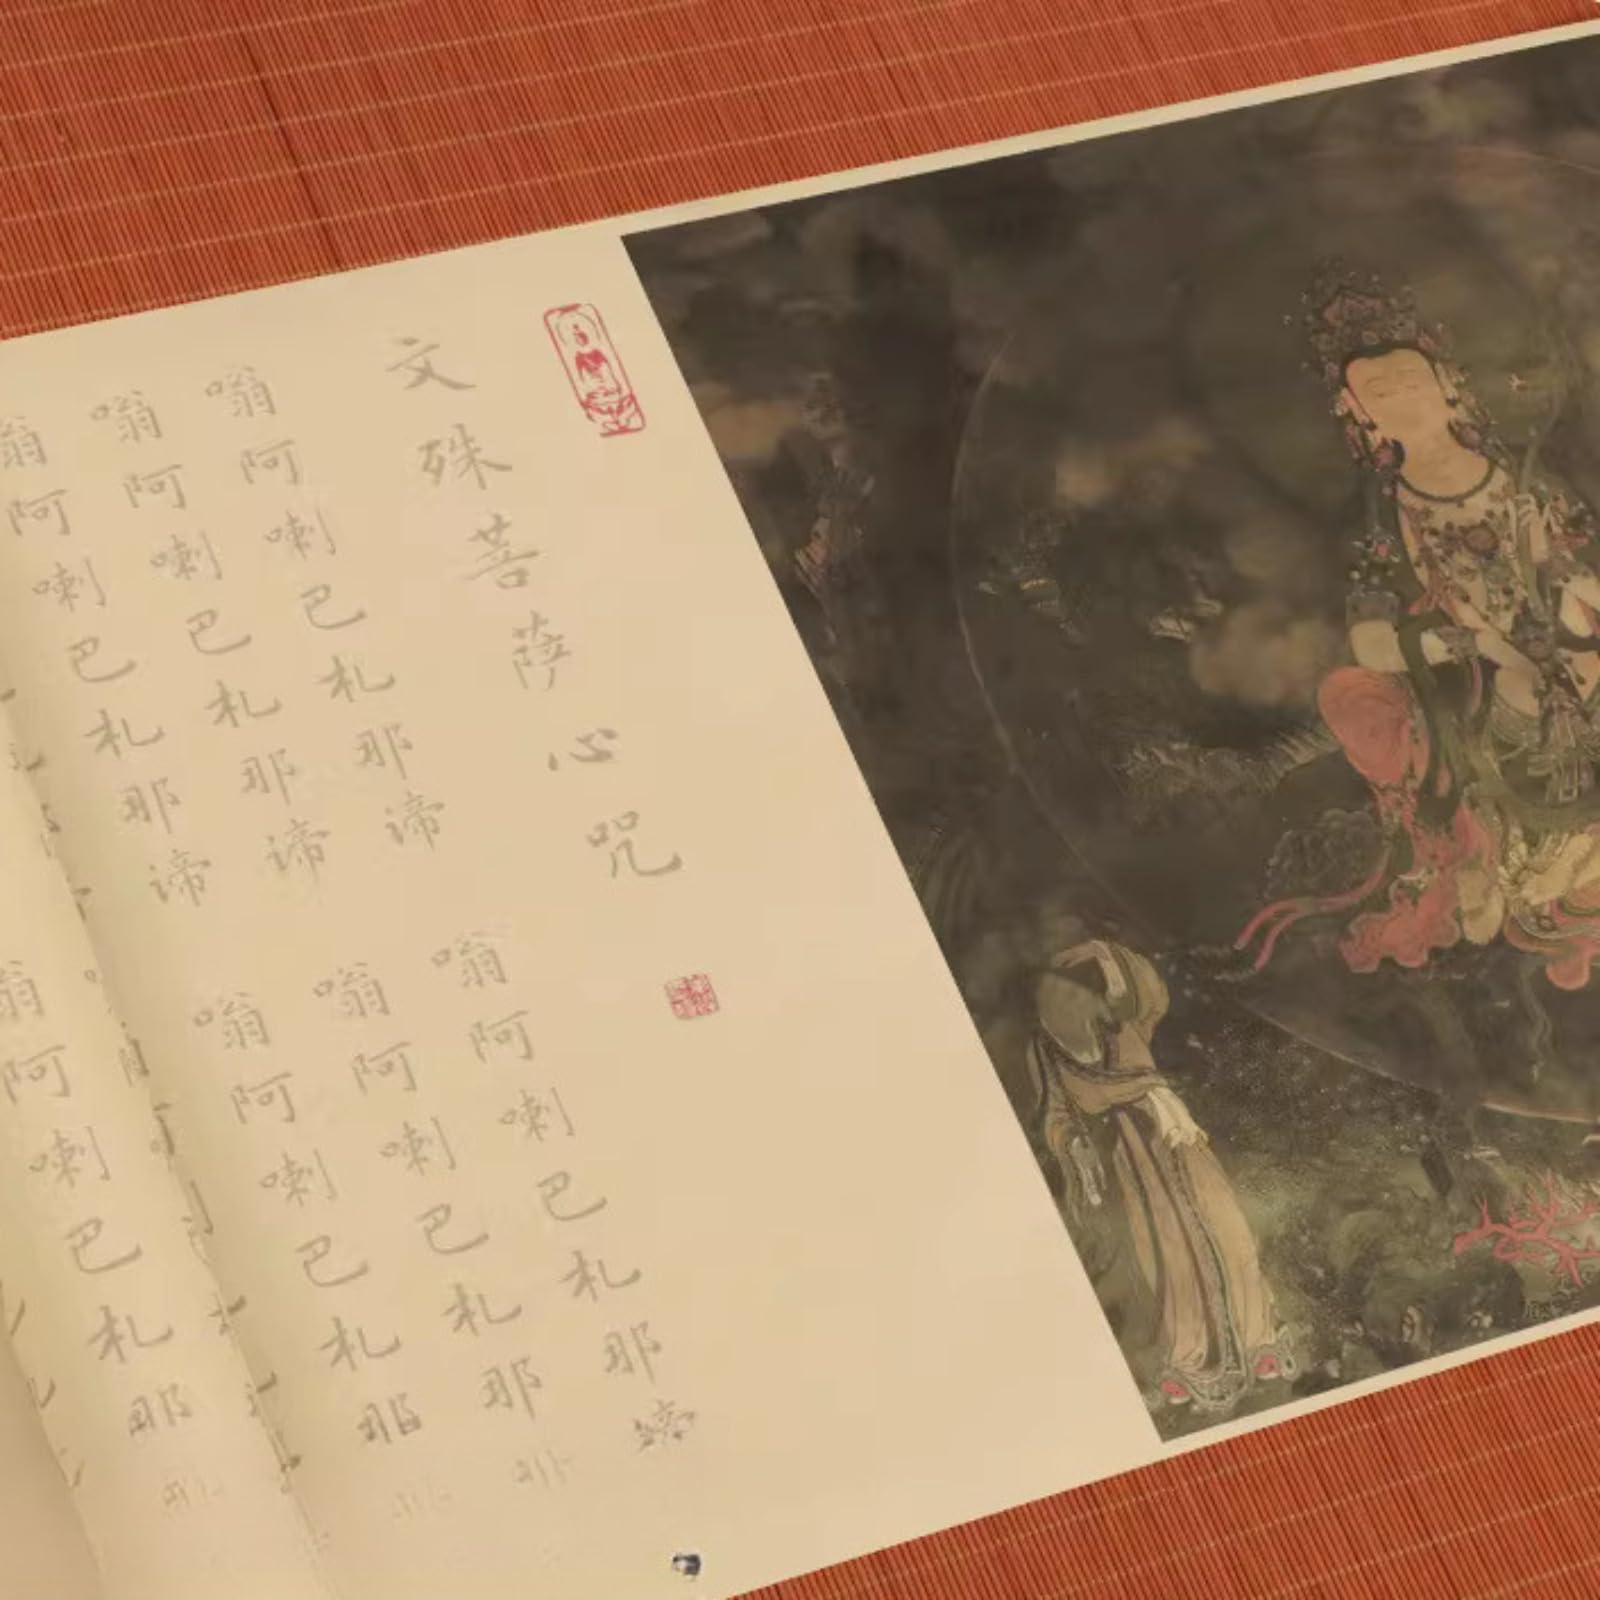 文殊菩萨心咒
嗡阿喇巴札那谛
嗡阿喇巴札那谛
嗡阿喇巴札那谛
嗡阿喇巴札那谛
嗡阿喇巴札那
嗡阿喇巴札那
嗡阿喇巴札那谛
嗡阿喇巴札那